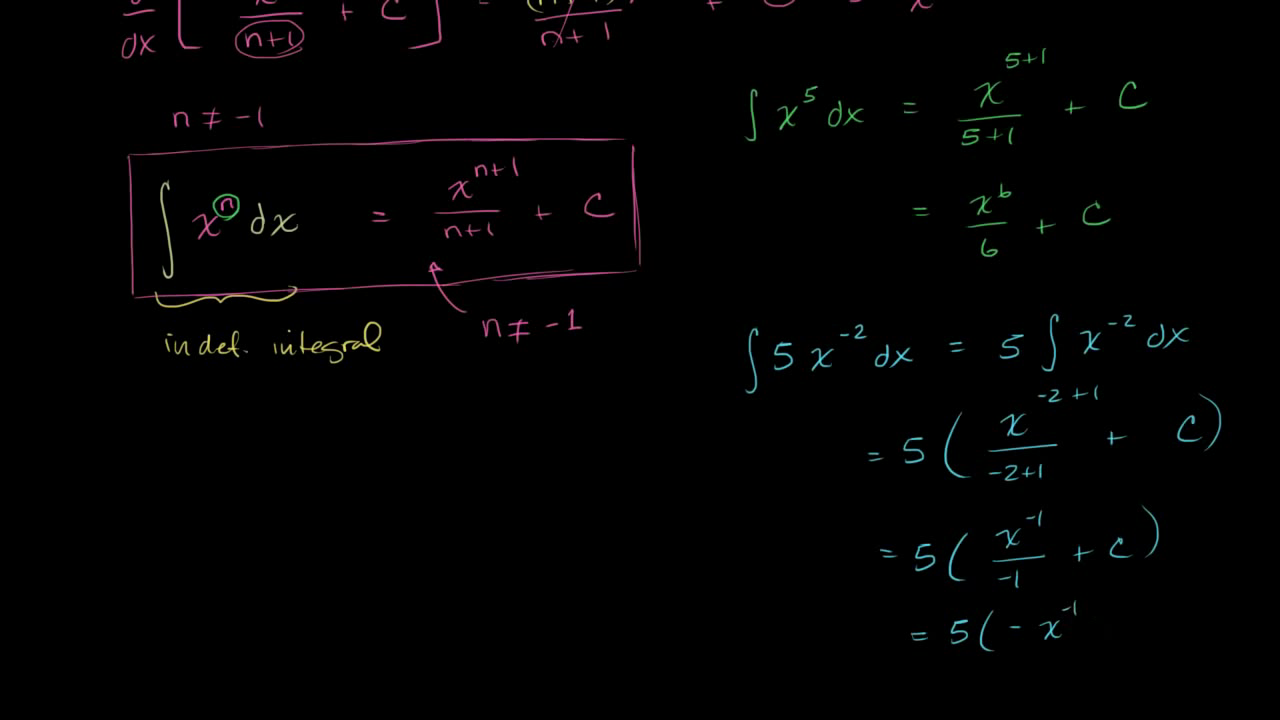 d/dx [ x/(n+1) + C ] = (n+1)/(n+1) + x
n ≠ -1
∫ xⁿ dx = xⁿ⁺¹/(n+1) + C
n ≠ -1
indef. integral
∫ x⁵ dx = x⁵⁺¹/(5+1) + C
= x⁶/6 + C
∫ 5 x⁻² dx = 5 ∫ x⁻² dx
= 5 ( x⁻²⁺¹/(-2+1) + C )
= 5 ( x⁻¹/-1 + C )
= 5 ( - x⁻¹